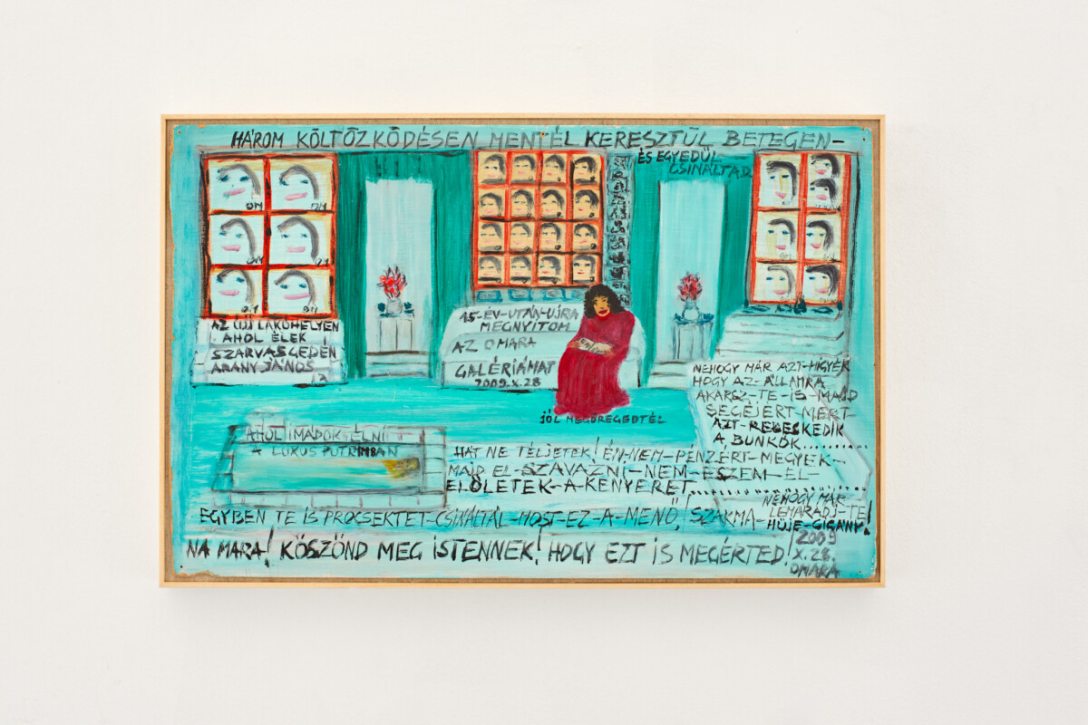 HÁROM KÖLTÖZKÖDÉSEN MENTÉL KERESZTÜL BETEGEN-
ÉS EGYEDÜL
CSINÁLTAD
AZ ÚJ LAKÓHELYEN
AHOL ÉLEK
SZARVASGEDÉN
ARANY JÁNOS
15-ÉV-UTÁN-UJRA
MEGNYITOM
AZ OMARA
GALÉRIÁMAT
2009.X.28
JÓL MEGÖREGEDTÉL
NEHOGY MÁR AZT-HIGYÉK
HOGY AZ-ÁLLAMRA
AKARSZ-TE-IS-MAJD
SEGÉJÉRT-MERT
AZT-REBESKEDIK
A BUNKÓK..........
AHOL IMÁDOK ÉLNI
A LUXUS PUTRIMBAN
HÁT NE FÉLJETEK! ÉN-NEM-PÉNZÉRT-MEGYEK-
MAJD EL-SZAVAZNI-NEM-ESZEM-EL-
ELŐLETEK-A-KENYERET
NEHOGY MÁR
LEMARADJ-TE!
HÜJE-CIGÁNY!
EGYBEN TE IS PROCSEKTET-CSINÁLTÁL-MOST-EZ-A-MENŐ, SZAKMA-
NA MARA! KÖSZÖND MEG ISTENNEK! HOGY EZT IS MEGÉRTED!
2009
X.28.
OMARA